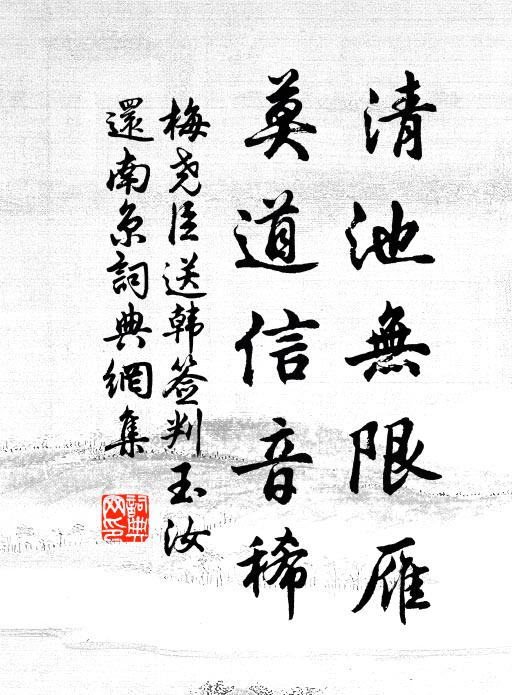 清池無限雁
莫道信音稀
梅尧臣送韩签判玉汝
還南京詞典網集
詞典
网印